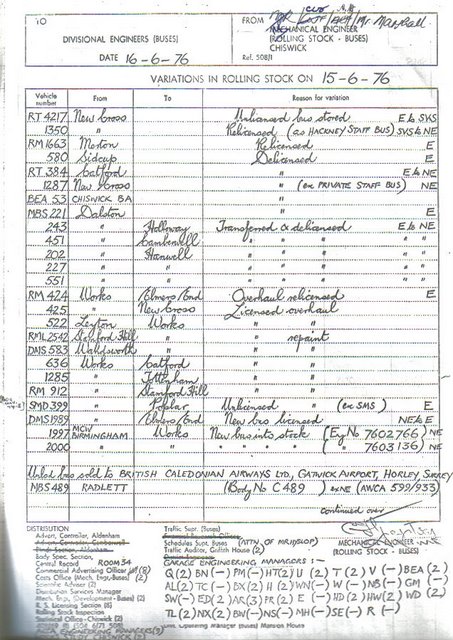 TO
DIVISIONAL ENGINEERS (BUSES)
DATE 16-6-76
FROM
MECHANICAL ENGINEER
(ROLLING STOCK - BUSES)
CHISWICK
Ref. 508/1
VARIATIONS IN ROLLING STOCK ON 15-6-76
Vehicle number From To Reason for variation
RT 4217 New Cross Unlicensed bus stored E to SKS
1350 " Relicensed (as HACKNEY STAFF BUS) SKS to NE
RM 1663 Merton Relicensed E
580 Sidcup Delicensed E
RT 384 Catford " E to NE
1287 New Cross " (ex PRIVATE STAFF BUS) NE
BEA 53 CHISWICK BA "
MBS 221 Dalston " E
243 " Holloway Transferred & delicensed E to NE
451 " Camberwell " " " " "
202 " Hanwell " " " " "
227 " " " " " " "
551 " " " " " " "
RM 424 Works Elmers End Overhaul relicensed E
425 " New Cross Licensed overhaul
522 Leyton Works " "
RML 2542 Stamford Hill " " repaint
DMS 583 Wandsworth " "
636 Works Catford " "
1285 " Tottenham " "
RM 912 " Stamford Hill " "
SMD 399 " Poplar Unlicensed " (ex SMS) E
DMS 1989 " Elmers End New bus licensed NE to E
1997 MCW BIRMINGHAM Works New bus into stock (Eng No 7602766) NE
2000 " " " " " " ( " " 7603136) NE
Unlcd bus sold to BRITISH CALEDONIAN AIRWAYS LTD, GATWICK AIRPORT, HORLEY, SURREY
MBS 489 RADLETT (Body No C 489) ex NE (AWCA 599/933)
continued over
MECHANICAL ENGINEER
(ROLLING STOCK - BUSES)
DISTRIBUTION
Advert. Controller, Aldenham
Body Spec. Section,
Central Record ROOM 34
Commercial Advertising Officer (8)
Costs Office (Mech. Engr.-Buses) (2)
Scientific Adviser (2)
Distribution Services Manager
Mech. Engr. (Development - Buses)
R. S. Licensing Section (8)
Rolling Stock Inspectors
Technical Officer - Chiswick (2)
Traffic Supt. (Buses)
Schedules Supt. Buses (ATTN. OF MR HYSLOP)
Traffic Auditor, Griffith House (2)
GARAGE ENGINEERING MANAGERS:-
Q(2) BN(-) PM(-) HT(2) U(2) T(2) V(-) BEA(2)
AL(2) TC(-) DX(2) H(2) N(2) W(-) NB(-) GM(-)
SW(-) ED(2) AR(3) FR(2) E(-) HD(2) HW(2) WD(2)
TL(2) NX(2) BW(-) NS(-) MH(-) SE(-) R(-)